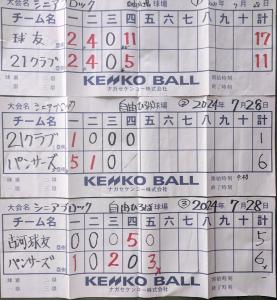 大会名 シニアブロック 球場 ① 年 7月28日
チーム名 一 二 三 四 五 六 七 八 九 十 計
球友 2 4 0 11 17
21クラブ 2 4 0 5 11
KENKO BALL
ナガセケンコー株式会社
終了時刻
大会名 シニアブロック 自由ひろば 球場 ② 2024年 7月28日
チーム名 一 二 三 四 五 六 七 八 九 十 計
21クラブ 1 0 0 0 1
パンサーズ 5 1 0 6
KENKO BALL
ナガセケンコー株式会社
開始時刻
終了時刻
大会名 シニアブロック 自由ひろば 球場 ③ 2024年 7月28日
チーム名 一 二 三 四 五 六 七 八 九 十 計
古河球友 0 0 0 5 0 5
パンサーズ 1 0 2 0 3x 6
KENKO BALL
ナガセケンコー株式会社
開始時刻
終了時刻